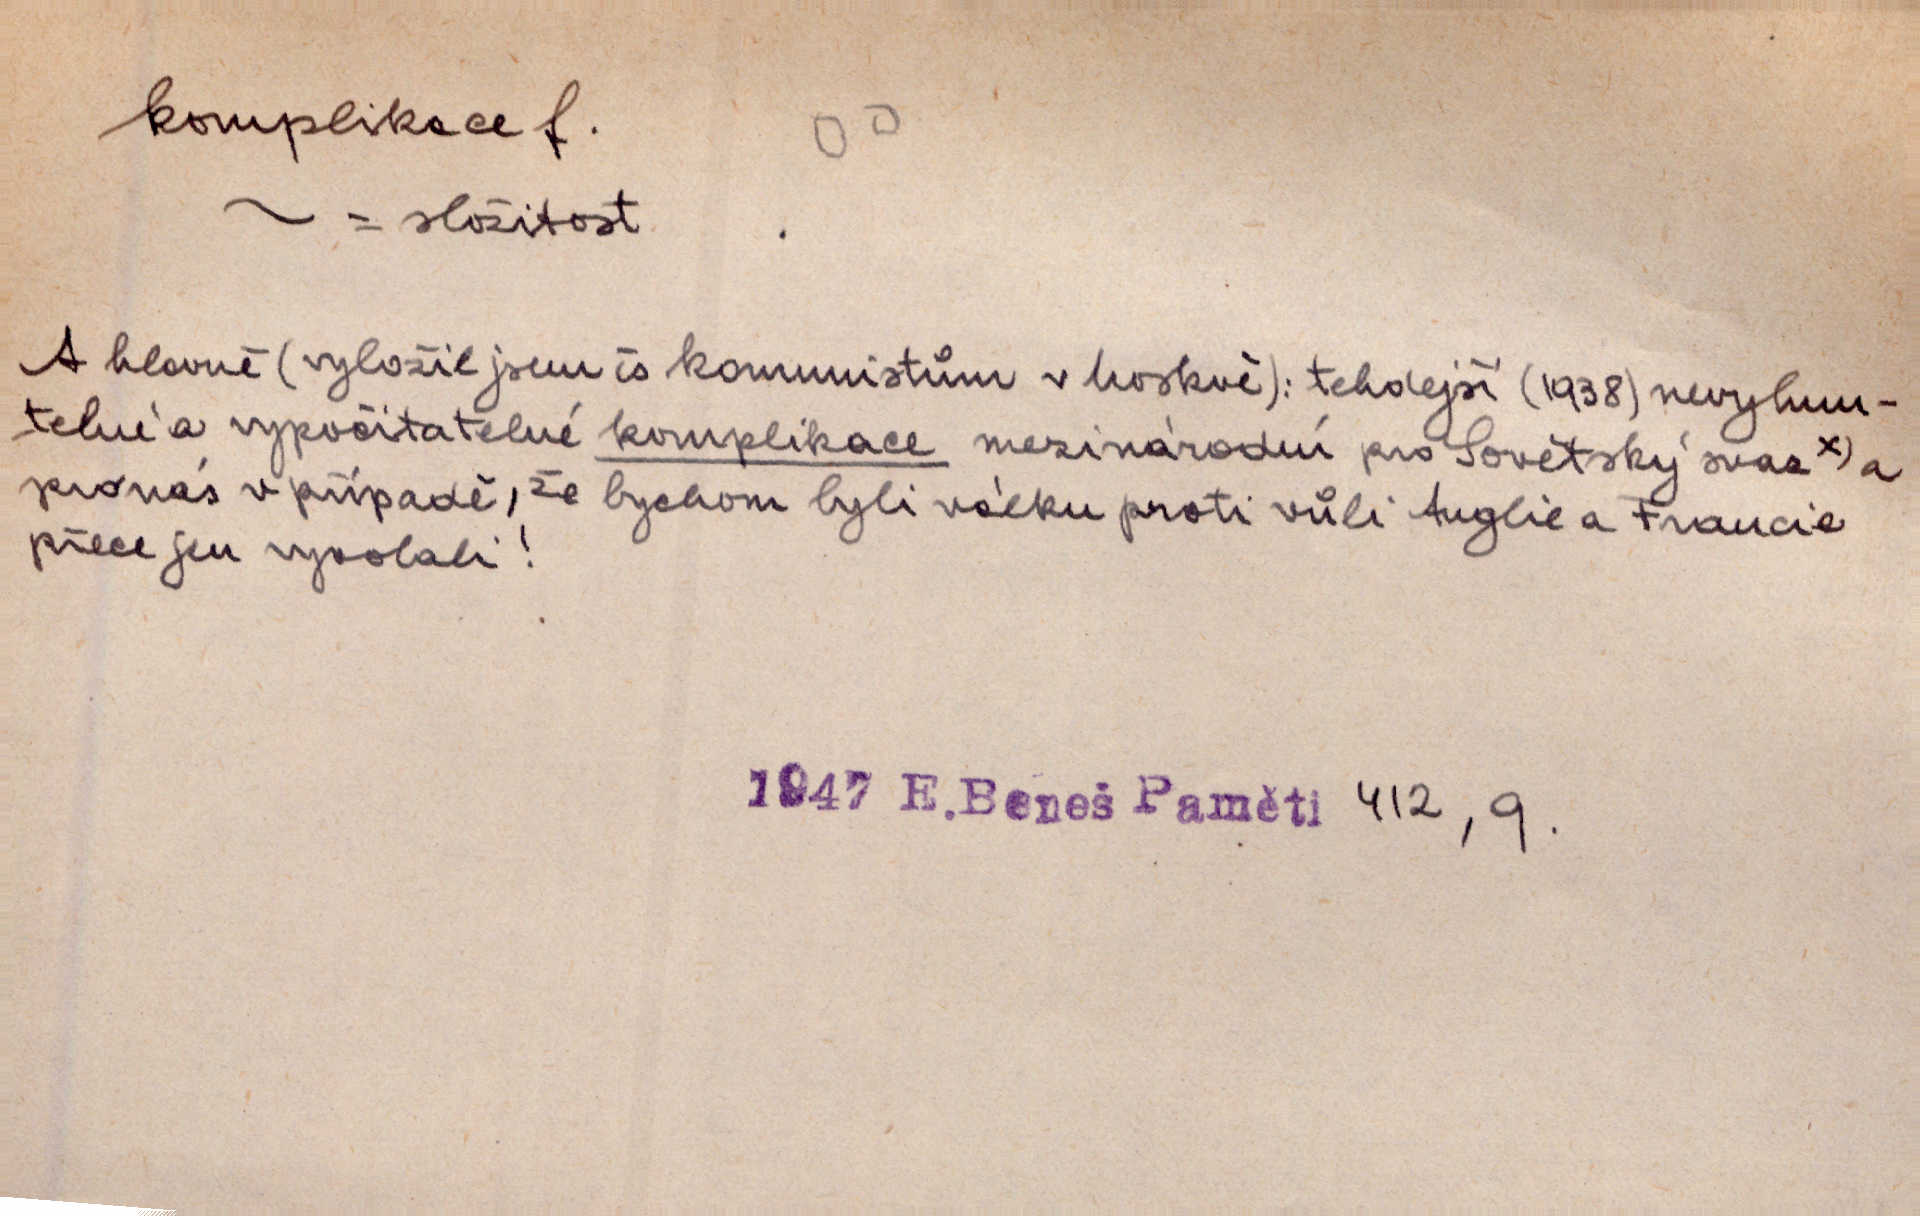 komplikace f.
~ = složitost
A hlavně (vyložil jsem čs komunistům v Moskvě): tehdejší (1938) nevyhnu-
telné a vypočitatelné komplikace mezinárodní pro Sovětský svaz x) a
pro nás v případě, že bychom byli válku proti vůli Anglie a Francie
přece jen vyvolali!
1947 E. Beneš Paměti 412, 9.